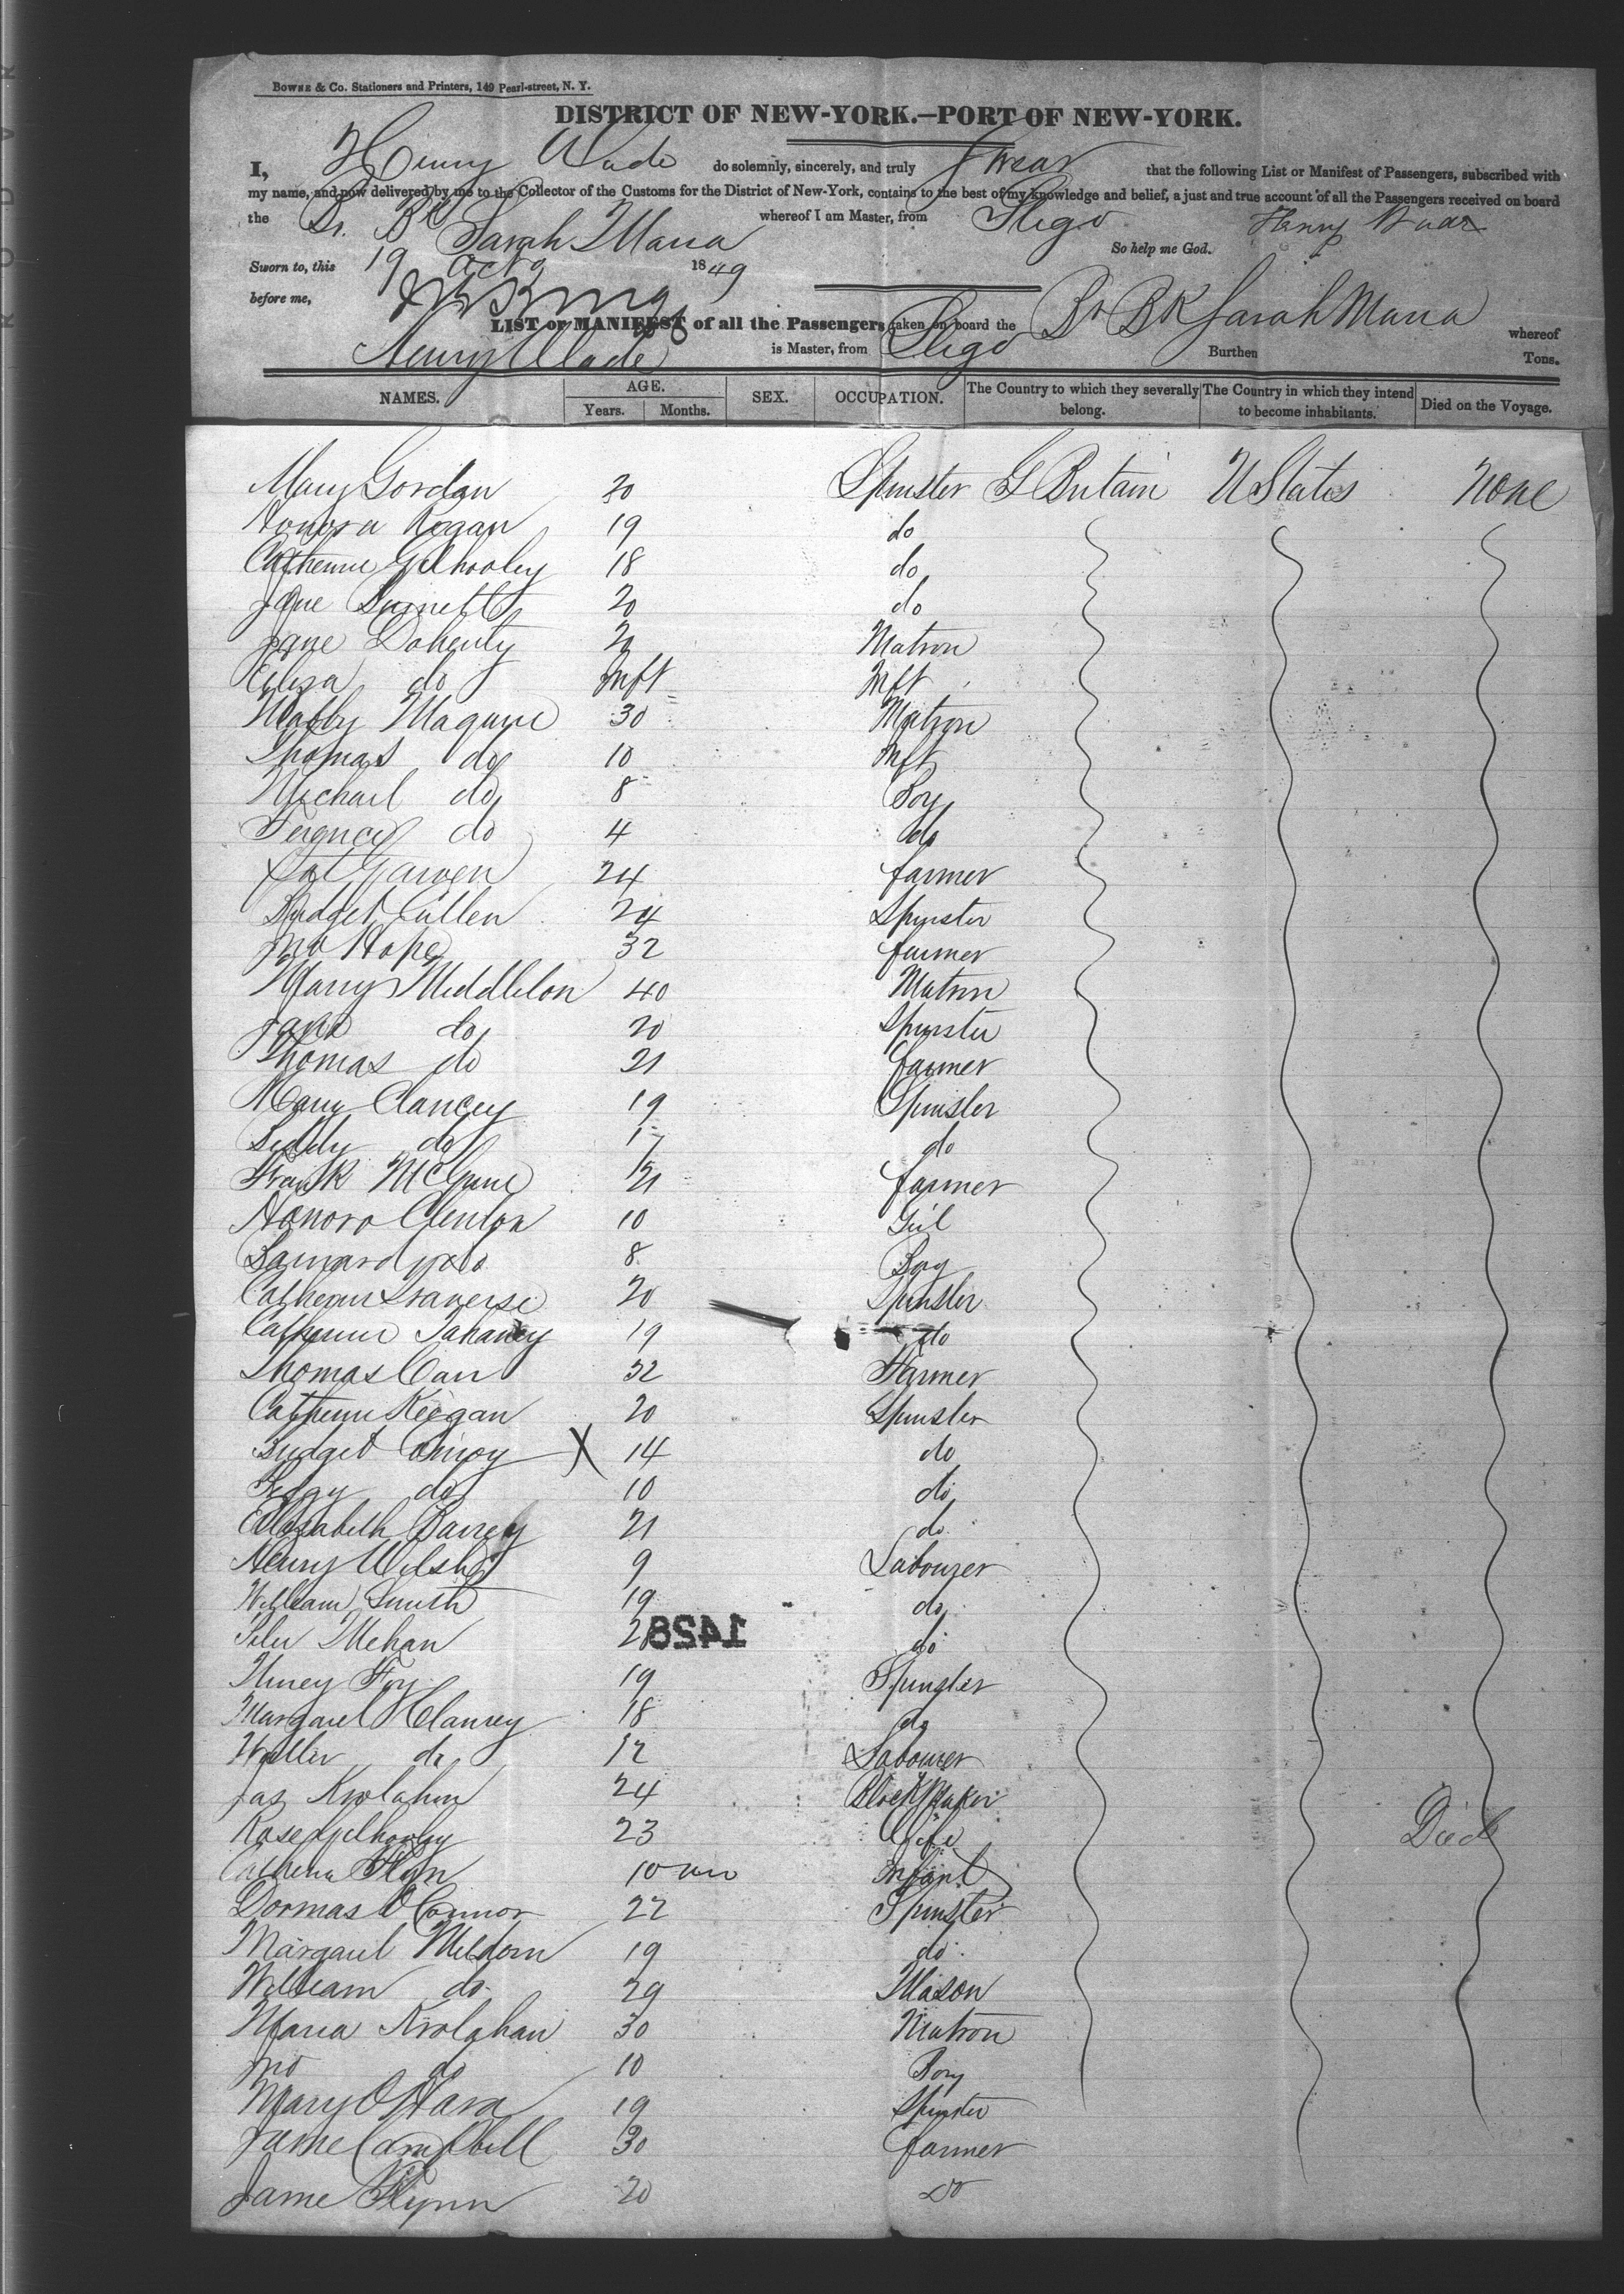 BOWNE & Co. Stationers and Printers, 149 Pearl-street, N. Y.
DISTRICT OF NEW-YORK.—PORT OF NEW-YORK.
I, Henry Wade do solemnly, sincerely, and truly Swear that the following List or Manifest of Passengers, subscribed with
my name, and now delivered by me to the Collector of the Customs for the District of New-York, contains to the best of my knowledge and belief, a just and true account of all the Passengers received on board
the Br. Bk Sarah Maria whereof I am Master, from Sligo
So help me God. Henry Wade
Sworn to, this 19 1849
before me,
LIST or MANIFEST of all the Passengers taken on board the Br BK Sarah Maria whereof
Henry Wade is Master, from Sligo Burthen Tons.
NAMES. AGE. Years. Months. SEX. OCCUPATION. The Country to which they severally belong. The Country in which they intend to become inhabitants. Died on the Voyage.
Mary Gordan 20 Spinster G Britain U States None
Honora Rogan 19 do
Catherine Gilhooley 18 do
Jane 20 do
Jane Doherty Matron
Eliza do Inft Inft
Maguire 30 Matron
Thomas do 10 Inft
Michael do 8 Boy
do 4 do
Pat 24 farmer
Bridget Cullen 24 Spinster
Jno Hope 32 farmer
Mary Middleton 40 Matron
Jane do 20 Spinster
Thomas do 21 farmer
Mary Clancey 19 Spinster
Biddy do 17 do
Frank 21 farmer
Honora 10 Girl
Barnard do 8 Boy
Catherine Traverse 20 Spinster
Catherine 19 do
Thomas Carr 32 Farmer
Catherine Keegan 20 Spinster
Bridget X 14 do
do 10 do
Elizabeth 21 do
Henry Welsh 9 Labourer
William Smith 19 do
Peter Mehan 1428 do
Foy 19 Spinster
Margaret Clancey 18 do
do 12 Labourer
Jas 24 Block Maker
Rose Gilhooley 23 Wife Died
10 Infant
O'Connor 22 Spinster
Margaret 19 do
William do 29 Mason
Maria 30 Matron
Jno do 10 Boy
Mary O'Hara 19 Spinster
Jame Campbell 30 farmer
Jame Flynn 20 do